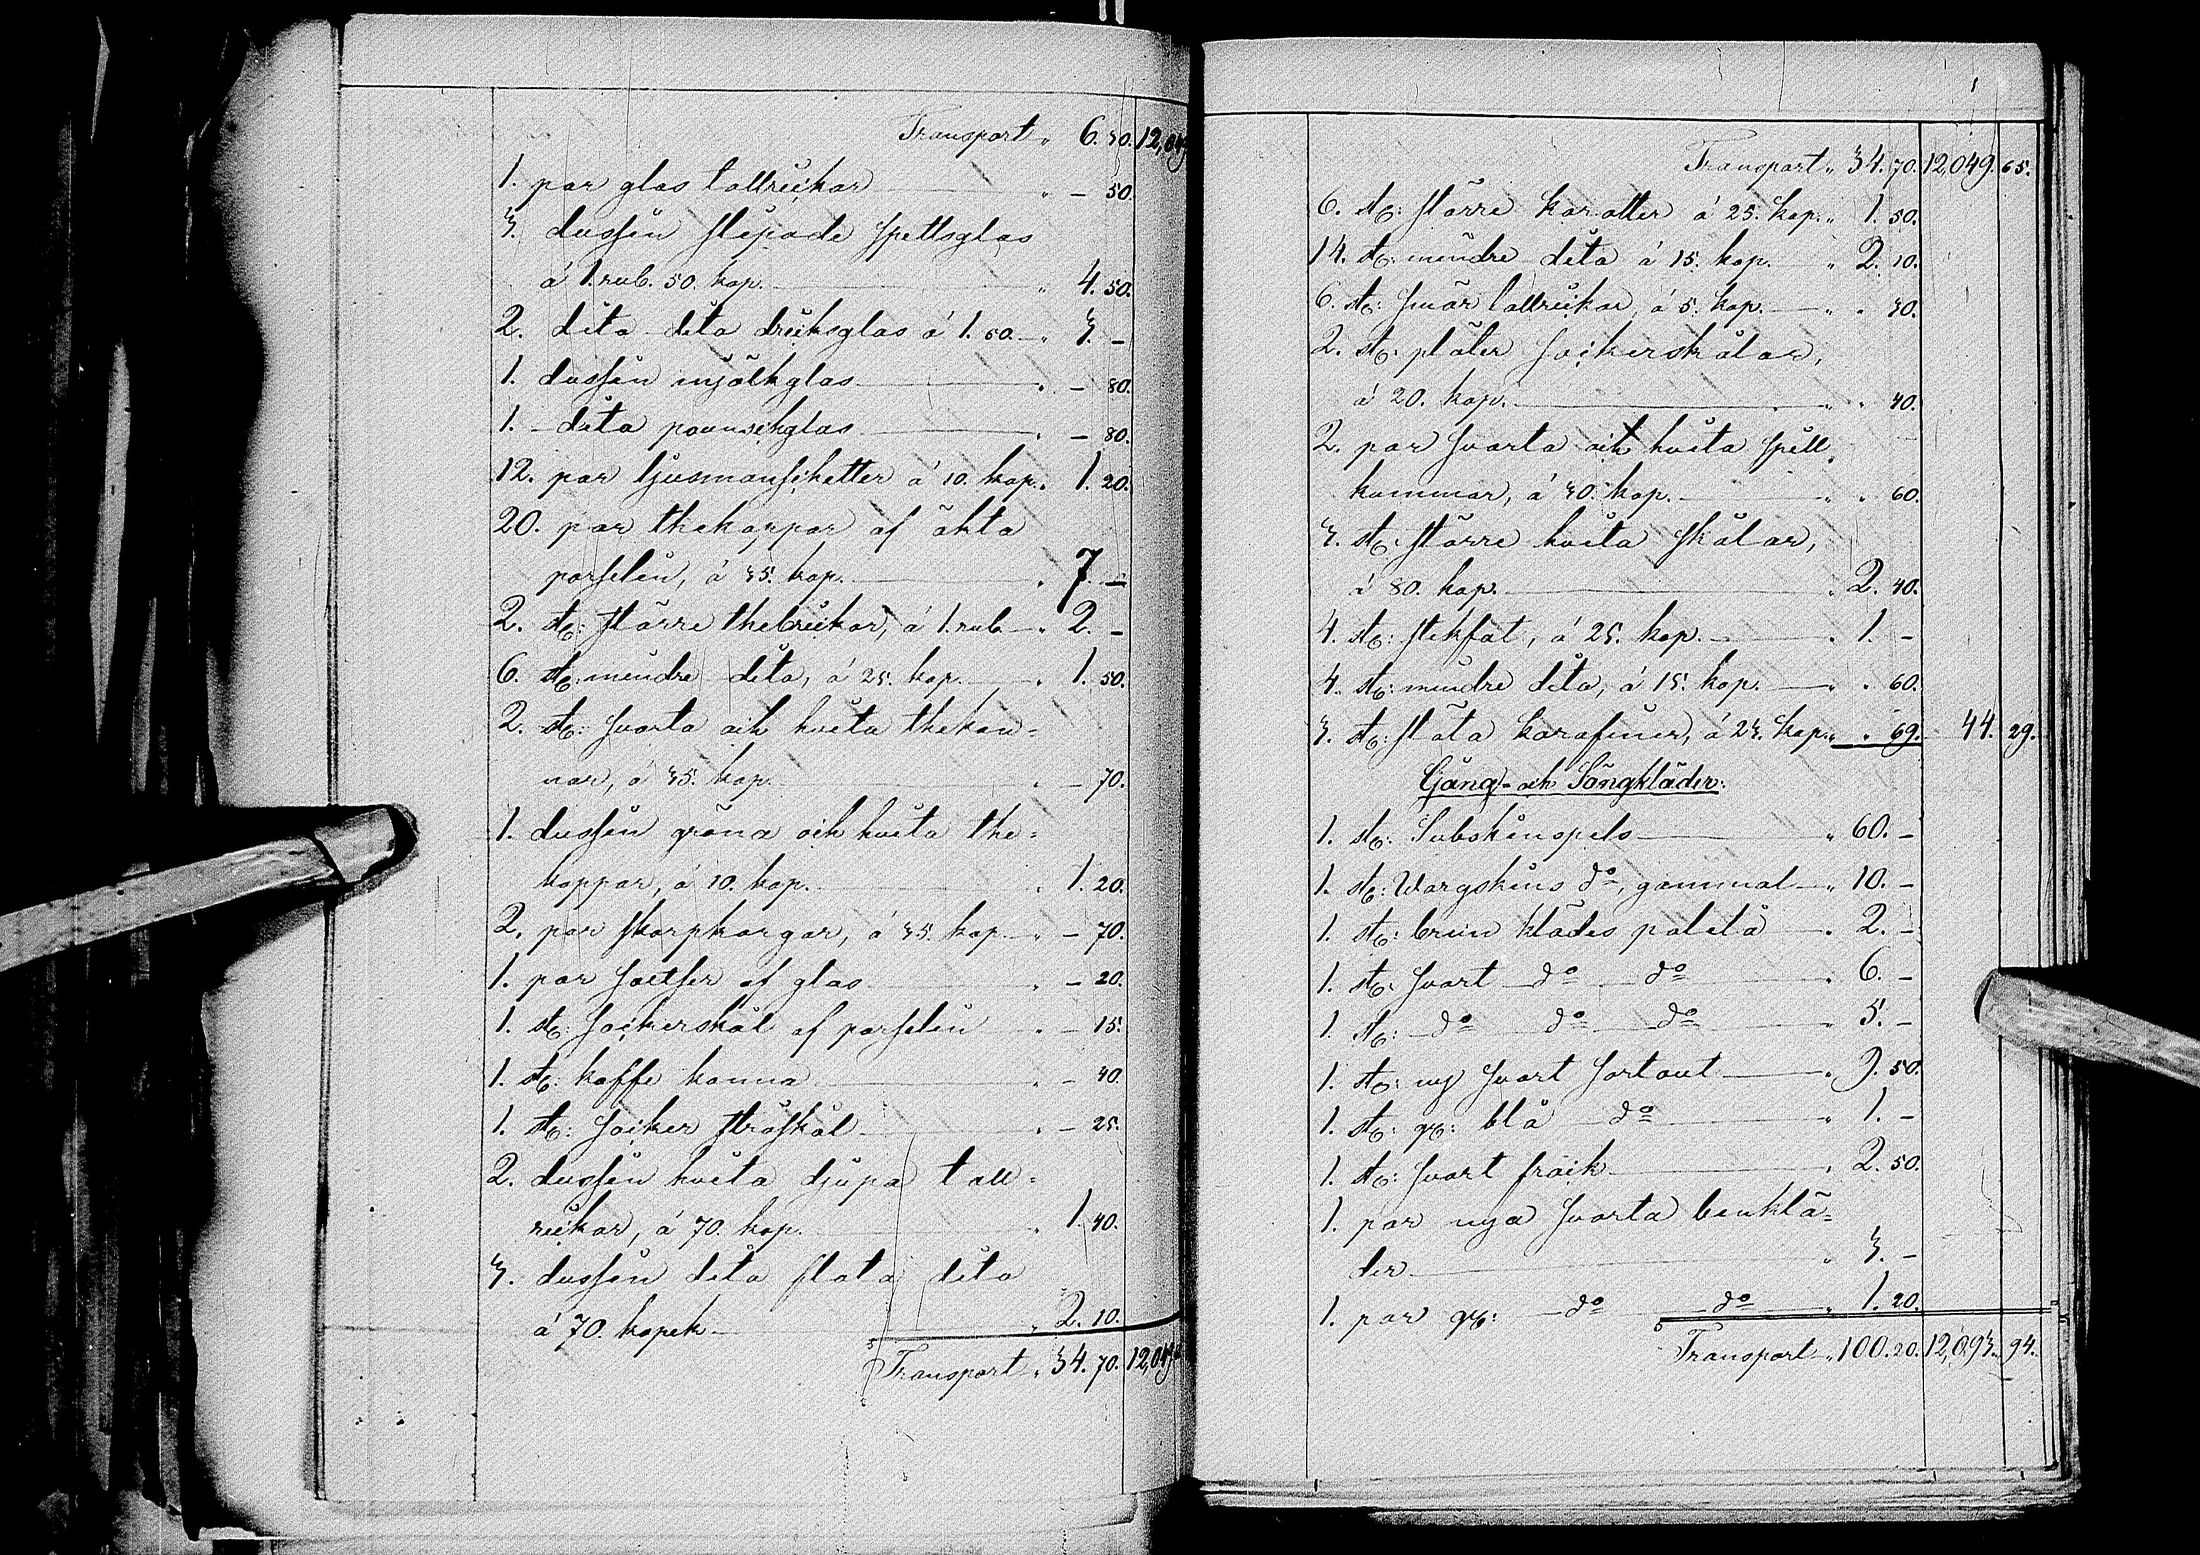 Transport „ 6. 30. 12,049
1. par glas tallrickar „ – 50.
3. dussin slipade spettsglas
á 1. rub. 50. kop. „ 4. 50.
2. dito dito dricksglas á 1. 50. „ 3. –
1. dussin mjölkglas „ – 80.
1. dito pounschglas „ – 80.
12. par ljusmanschetter á 10. kop. „ 1. 20.
20. par thekoppar af äkta
porselin, á 35. kop. „ 7. –
2. st: större thebrickor, á 1. rub. „ 2. –
6. st: mindre dito, á 25. kop. „ 1. 50.
2. st: svarta och hvita thekan=
nor, á 35. kop. „ – 70.
1. dussin gröna och hvita the=
koppar, á 10. kop. „ 1. 20.
2. par skorpkorgar, á 35. kop. „ – 70.
1. par saltser af glas „ – 20.
1. st: sockerskål af porselin „ – 15.
1. st: kaffe kanna „ – 40.
1. st: socker ströskål „ – 25.
2. dussin hvita djupa tall=
rickar, á 70. kop. „ 1. 40.
3. dussin dito flata dito
á 70. kopek „ 2. 10.
Transport „ 34. 70. 12,049
Transport „ 34. 70. 12,049. 65.
6. st: större karotter á 25. kop. „ 1. 50.
14. st: mindre dito á 15. kop. „ 2. 10.
6. st: smör tallrickar, á 5. kop. „ „ 30.
2. st: pläter sockerskålar,
á 20. kop. „ „ 40.
2. par svarta och hvita spill
kummar, á 30. kop. „ „ 60.
3. st: större hvita skålar,
á 80. kop. „ 2. 40.
4. st: stekfat, á 25. kop. „ 1. –
4. st: mindre dito, á 15. kop. „ „ 60.
3. st: släta karafiner, á 23. kop. „ „ 69. 44. 29.
Gång- och Sängkläder:
1. st: Subskinspels „ 60. –
1. st: Wargskins do, gammal „ 10. –
1. st: brun klädes paletå „ 2. –
1. st: svart do do „ 6. –
1. st: do do do „ 5. –
1. st: ny svart sortout „ 9. 50.
1. st: gl: blå do „ 1. –
1. st: svart frack „ 2. 50.
1. par nya svarta benklä=
der „ 3. –
1. par gl: do do „ 1. 20.
Transport „ 100. 20. 12,093. 94.